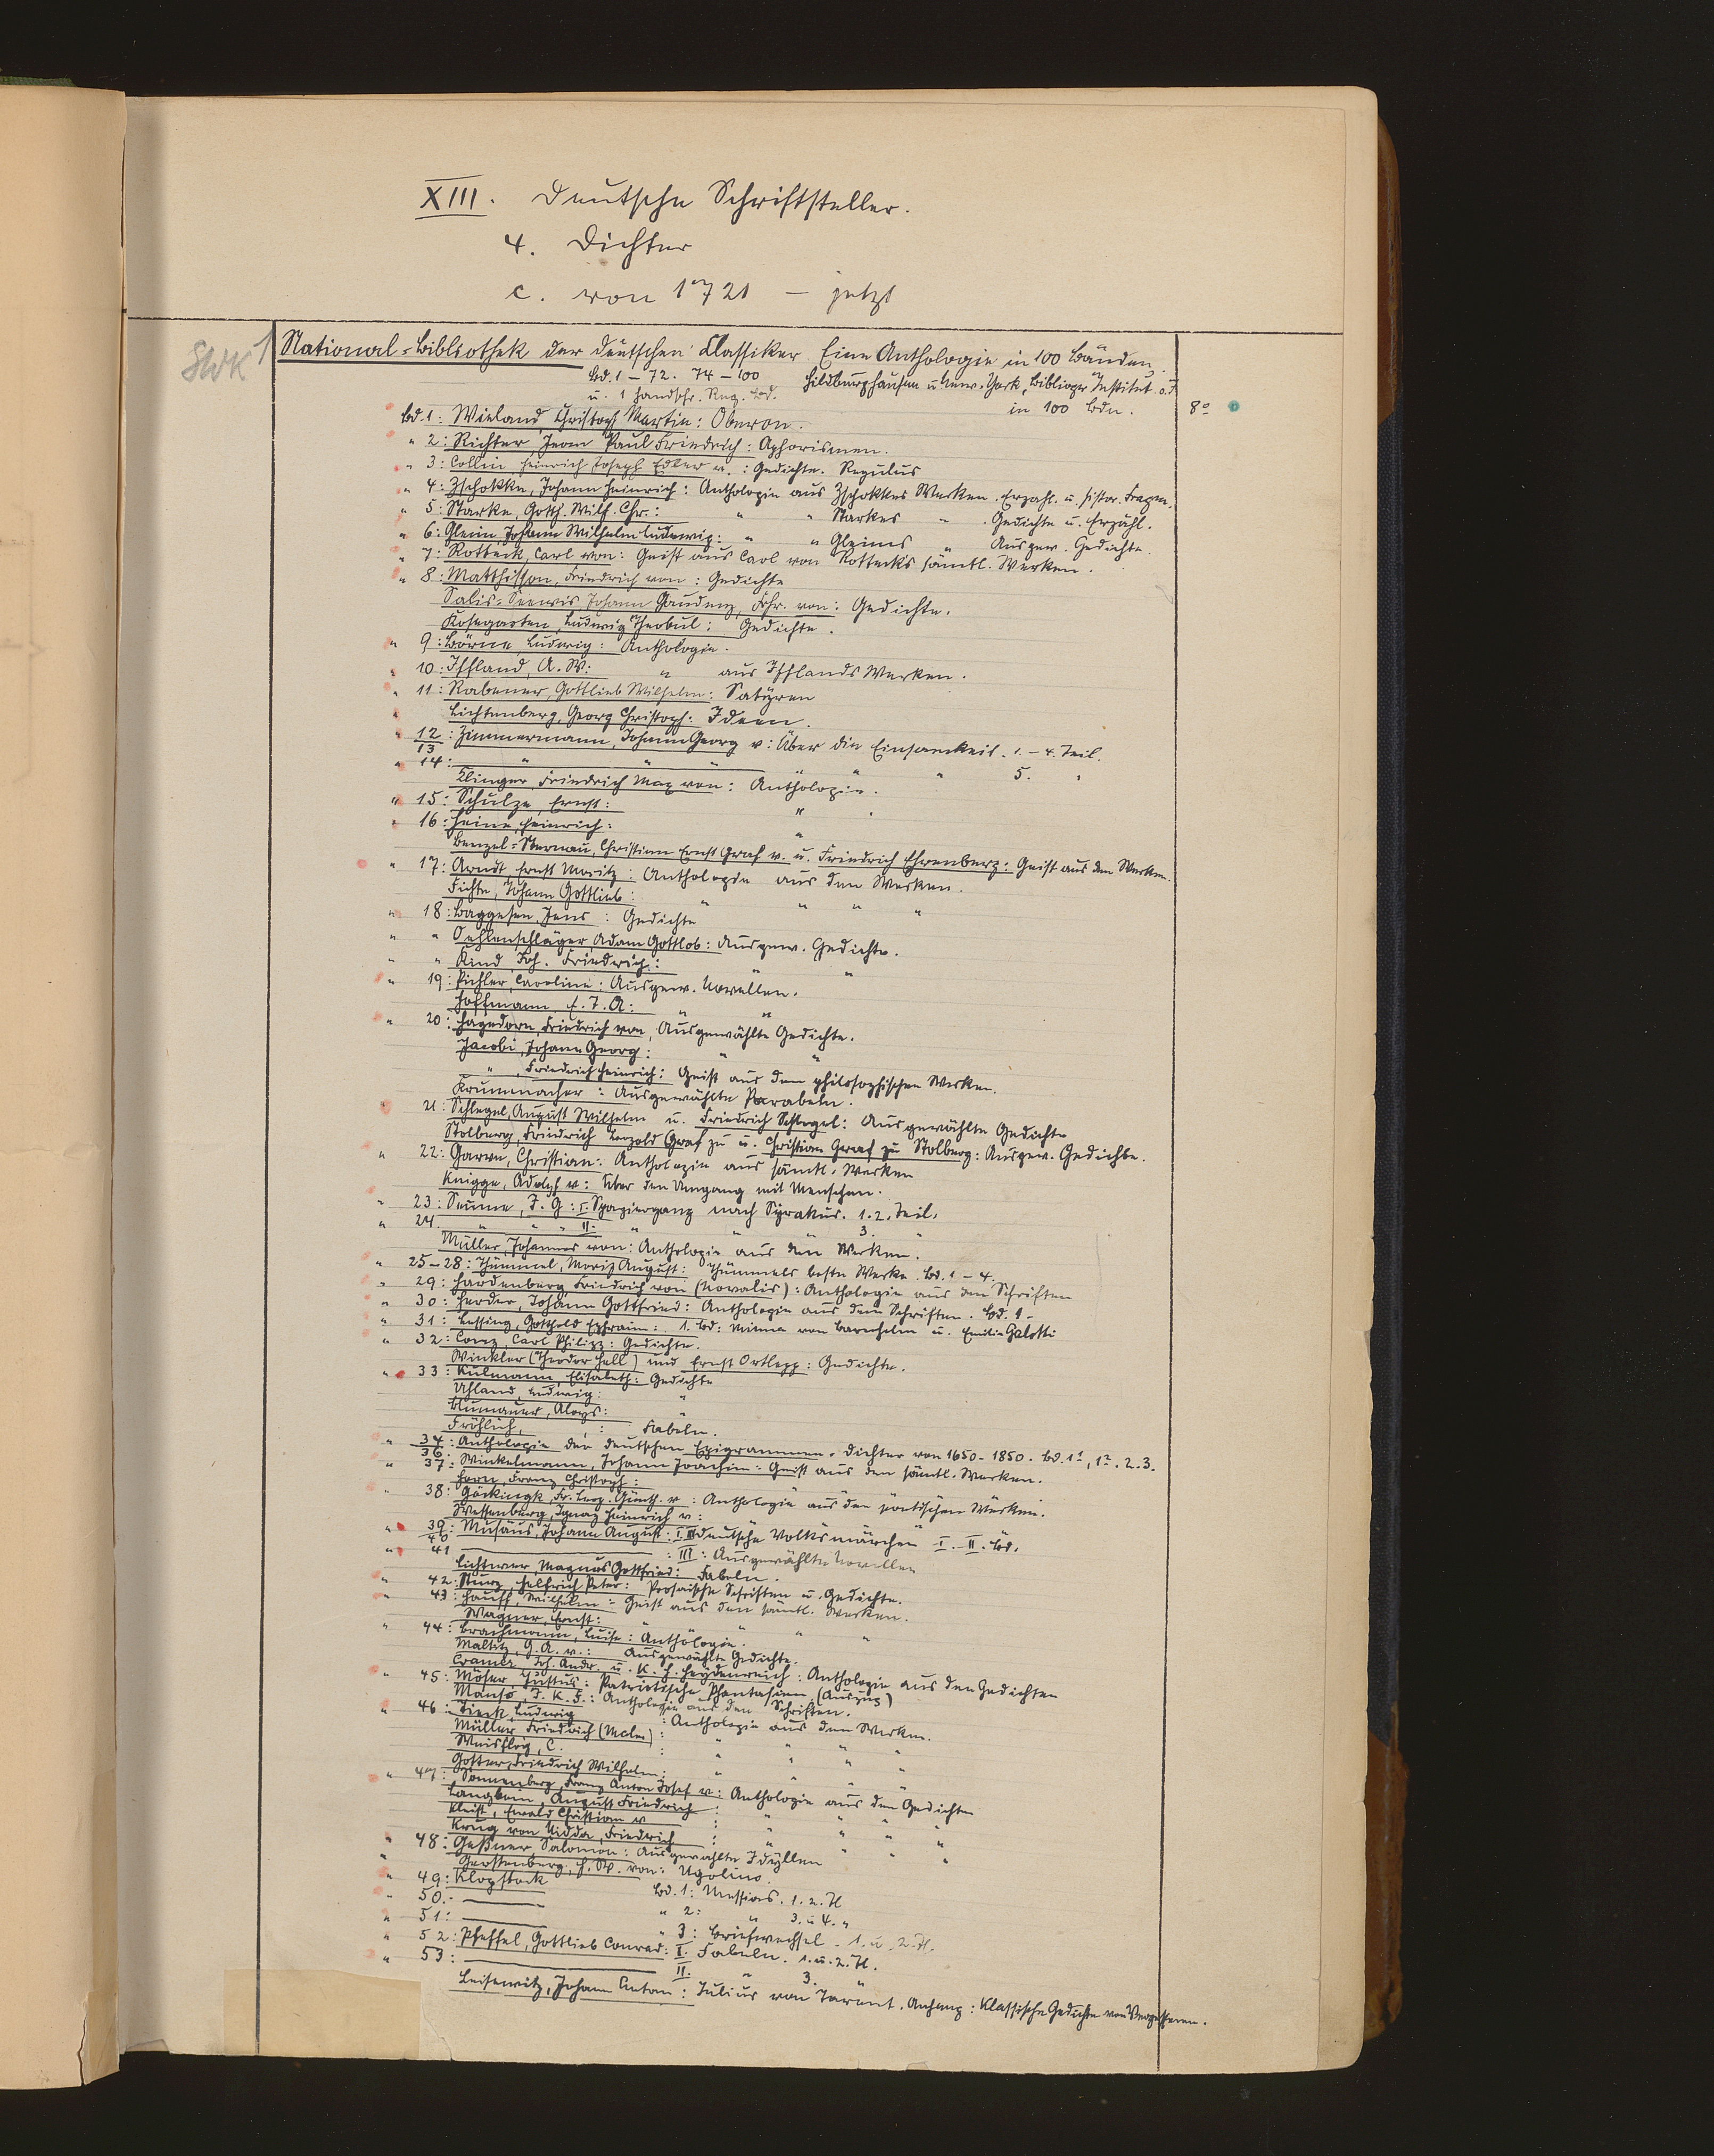 XIII. Deutsche Schriftsteller.
4. Dichter
c. von 1721 – jetzt
SWK 1
National-Bibliothek der deutschen Classiker. Eine Anthologie in 100 Bänden.
Bd. 1 – 72. 74 – 100 Hildburghausen u. New-York, Bibliogr. Institut o. J.
u. 1 handschr. Reg. Bd. in 100 Bdn. 8°
Bd. 1: Wieland, Christoph Martin: Oberon.
" 2: Richter, Jean Paul Friedrich: Aphorismen.
" 3: Collin, Heinrich Joseph Edler v.: Gedichte. Regulus
" 4: Zschokke, Johann Heinrich: Anthologie aus Zschokkes Werken. Erzähl. u. histor. Fragm.
" 5: Starke, Gotth. Wilh. Chr.: " " Starkes " . Gedichte u. Erzähl.
" 6: Gleim, Johann Wilhelm Ludewig: " " Gleims " Ausgew. Gedichte.
" 7: Rotteck, Carl von: Geist aus Carl von Rottecks sämtl. Werken.
" 8: Matthisson, Friedrich von: Gedichte
Salis-Seewis, Johann Gaudenz, Frhr. von: Gedichte.
Kosegarten, Ludwig Theobul: Gedichte.
" 9: Börne, Ludwig: Anthologie.
" 10: Iffland, A. W.: " aus Ifflands Werken.
" 11: Rabener, Gottlieb Wilhelm: Satyren
" Lichtenberg, Georg Christoph: Ideen.
" 12/13: Zimmermann, Johann Georg v: Über die Einsamkeit. 1. – 4. Teil.
" 14: " " " " " " 5. "
Klinger, Friedrich Max von: Anthologie.
" 15: Schulze, Ernst: "
" 16: Heine, Heinrich: "
Benzel-Sternau, Christian Ernst Graf v. u. Friedrich Ehrenberg: Geist aus den Werken.
" 17: Arndt, Ernst Moritz: Anthologie aus den Werken.
Fichte, Johann Gottlieb: " " " "
" 18: Baggesen, Jens: Gedichte
" " Oehlenschläger, Adam Gottlob: Ausgew. Gedichte.
" " Kind, Joh. Friedrich: " "
" 19: Pichler, Caroline: Ausgew. Novellen.
Hoffmann, E. T. A: " "
" 20: Hagedorn, Friedrich von, Ausgewählte Gedichte.
Jacobi, Johann Georg: " "
" , Friedrich Heinrich: Geist aus den philosophischen Werken.
Krummacher: Ausgewählte Parabeln.
21: Schlegel, August Wilhelm u. Friedrich Schlegel: Ausgewählte Gedichte
Stolberg, Friedrich Leopold Graf zu u. Christian Graf zu Stolberg: Ausgew. Gedichte.
" 22: Garve, Christian: Anthologie aus sämtl. Werken
Knigge, Adolph v: Über den Umgang mit Menschen.
" 23: Seume, J. G: I. Spaziergang nach Syrakus. 1. 2. Teil.
" 24. " " " II. " " 3. "
Müller, Johannes von: Anthologie aus den Werken.
" 25–28: Thümmel, Moriz August: Thümmels beste Werke. Bd. 1 – 4.
" 29: Hardenberg, Friedrich von (Novalis): Anthologie aus den Schriften
" 30: Herder, Johann Gottfried: Anthologie aus den Schriften. Bd. 1 –
" 31: Lessing, Gotthold Ephraim: 1. Bd: Minna von Barnhelm u. Emilia Galotti
" 32: Conz, Carl Philipp: Gedichte.
Winkler (Theodor Hell) und Ernst Ortlepp: Gedichte.
" 33: Kulmann, Elisabeth: Gedichte
Uhland, Ludwig: "
Blumauer, Aloys: "
Fröhlich, : Fabeln.
" 34/36: Anthologie der deutschen Epigrammen-Dichter von 1650–1850. Bd. 1¹, 1². 2. 3.
" 37: Winkelmann, Johann Joachim: Geist aus den sämtl. Werken.
Horn, Franz Christoph: " " " " "
" 38: Göckingk, Fr. Leop. Günth. v: Anthologie aus den poetischen Werken.
Wessenberg, Ignaz Heinrich v: " "
" 39/40: Musäus, Johann August: I. II. Deutsche Volksmärchen I.–II. Bd.
" 41 : III: Ausgewählte Novellen
Lichtwer, Magnus Gottfried: Fabeln.
" 42: Sturz, Helfrich Peter: Prosaische Schriften u. Gedichte.
" 43: Hauff, Wilhelm: Geist aus den sämtl. Werken.
Wagner, Ernst: " " " "
" 44: Brachmann, Luise: Anthologie.
Maltitz, G. A. v.: Ausgewählte Gedichte.
Cramer, Joh. Andr. u. K. H. Heydenreich: Anthologie aus den Gedichten
" 45: Möser, Justus: Patriotische Phantasien (Auszug)
Manso, J. K. F.: Anthologie aus den Schriften.
" 46: Tieck, Ludwig : Anthologie aus den Werken.
Müller Friedrich (Maler): " " " "
Weisflog, C. : " " " "
Gotter, Friedrich Wilhelm: " " " "
" 47: Sonnenberg, Franz Anton Josef v: Anthologie aus den Gedichten
Langbein, August Friedrich : " " " "
Kleist, Ewald Christian v : " " " "
Krug von Nidda, Friedrich : " " " "
" 48: Geßner, Salomon: Ausgewählte Idyllen
" Gerstenberg, H. W. von: Ugolino.
" 49: Klopstock Bd. 1: Messias. 1. 2. Tl
" 50: " 2: " 3. u 4. "
" 51: " 3: Briefwechsel. 1. u. 2. Tl.
" 52: Pfeffel, Gottlieb Conrad: I. Fabeln. 1. u. 2. Tl.
" 53: II. " 3. "
Leisewitz, Johann Anton: Julius von Tarent. Anhang: Klassische Gedichte von Vergessenen.